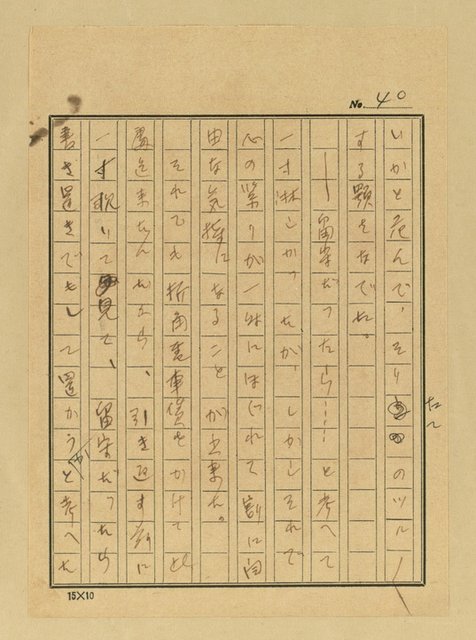 No. 40
いかと危んで、そり たての ツルー
する顎をなでた。
――留守だったら……と考へて
一寸淋しかったが、しかしそれで
心の繋りが一時にほぐれて割に自
由な気持になることが出来た。
それでも折角電車賃をかけて此
處迄来たんだから、引き返す前に
一寸覗いて見て、留守だったら
書き置きでもして置かうと考へた
15×10